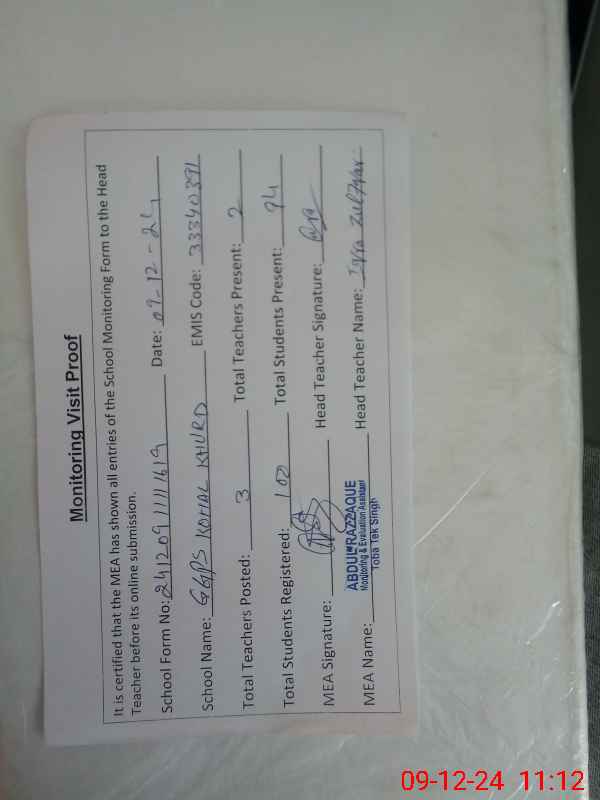 Monitoring Visit Proof
It is certified that the MEA has shown all entries of the School Monitoring Form to the Head
Teacher before its online submission.
School Form No: 241209111111619 Date: 09-12-24
School Name: GGPS KOHAL KHURD EMIS Code: 33340391
Total Teachers Posted: 3 Total Teachers Present: 2
Total Students Registered: 100 Total Students Present: 94
MEA Signature: Head Teacher Signature:
MEA Name: ABDUL RAZZAQUE Head Teacher Name: Iqra Zulfqar
Monitoring & Evaluation Assistant
Toba Tek Singh
09-12-24 11:12